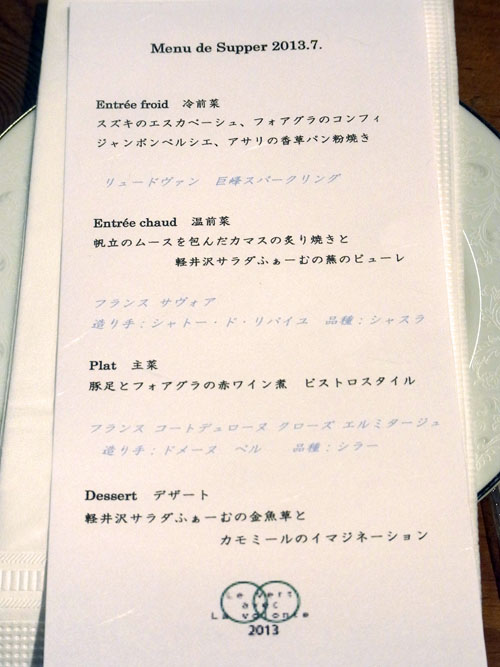 Menu de Supper 2013.7.
Entrée froid 冷前菜
スズキのエスカベーシュ、フォアグラのコンフィ
ジャンボンペルシエ、アサリの香草パン粉焼き
リュードヴァン 巨峰スパークリング
Entrée chaud 温前菜
帆立のムースを包んだカマスの炙り焼きと
軽井沢サラダふぁーむの蕪のピューレ
フランス サヴォア
造り手：シャトー・ド・リパイユ 品種：シャスラ
Plat 主菜
豚足とフォアグラの赤ワイン煮 ビストロスタイル
フランス コートデュローヌ クローズ エルミタージュ
造り手：ドメーヌ ベル 品種：シラー
Dessert デザート
軽井沢サラダふぁーむの金魚草と
カモミールのイマジネーション
Le Vert
avec
La volonte
2013